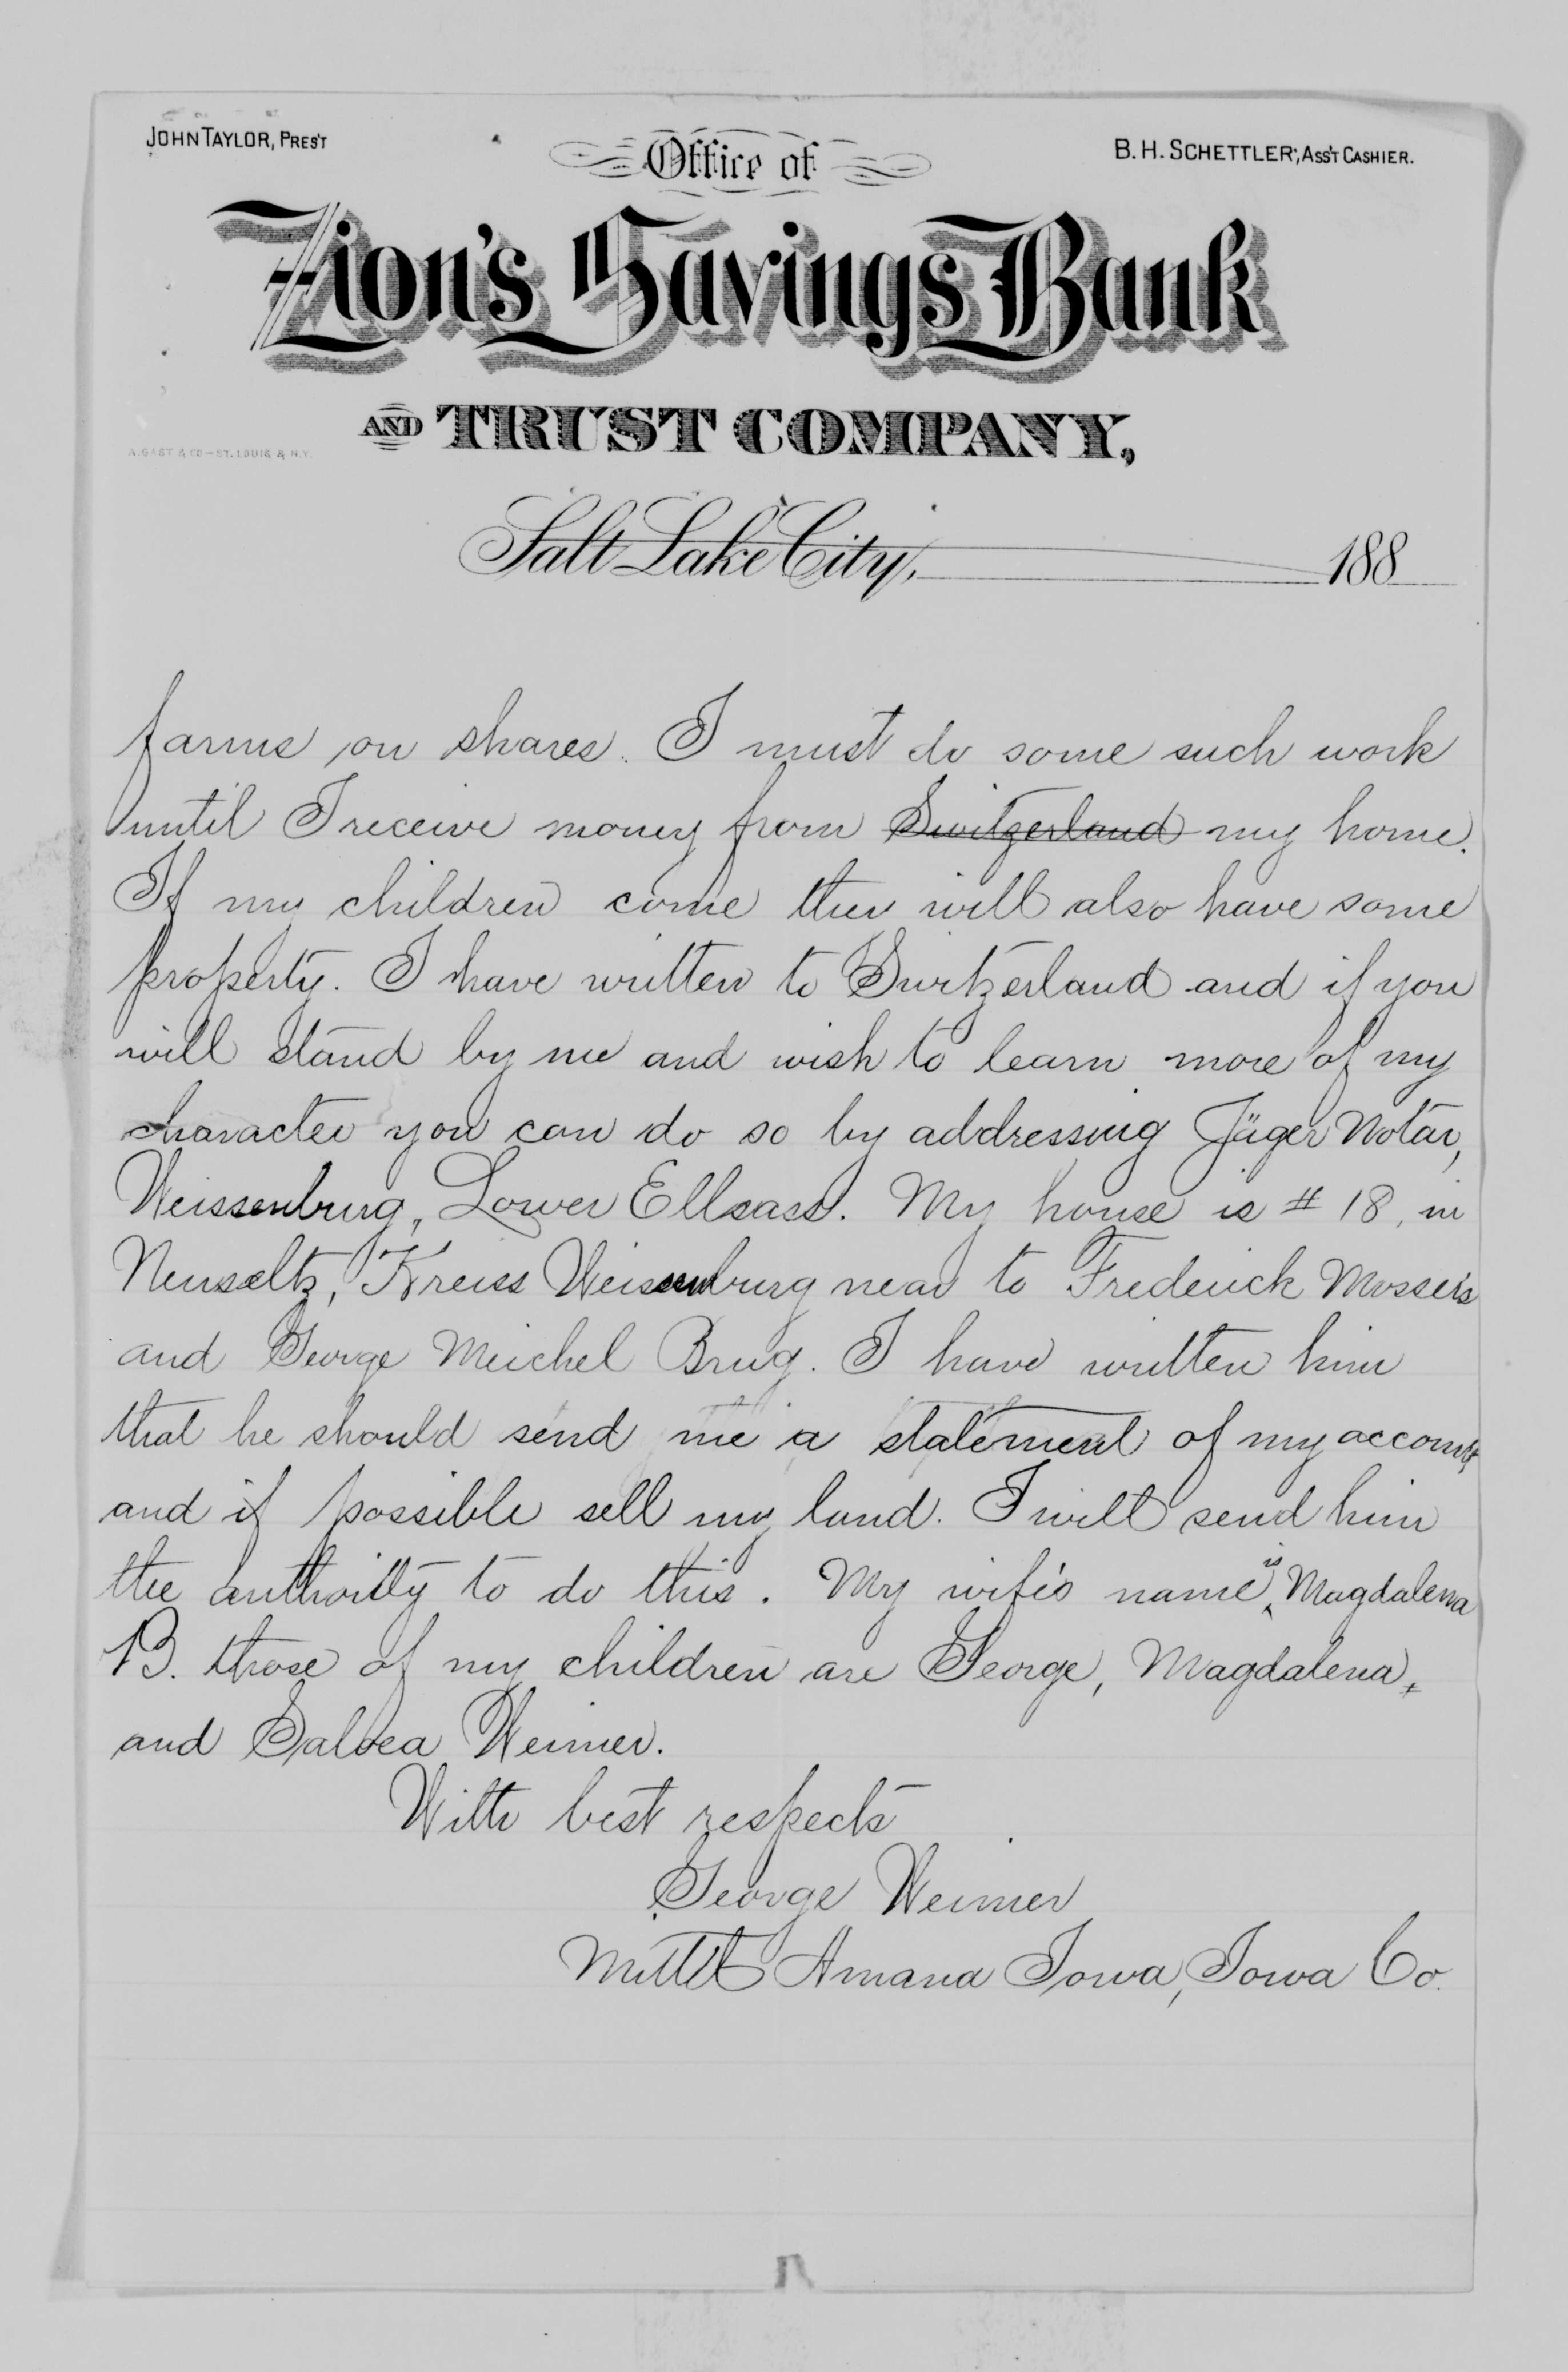 JOHN TAYLOR, PRES'T
Office of
B. H. SCHETTLER, ASS'T CASHIER.
Zion's Savings Bank
AND TRUST COMPANY,
A. GAST & CO - ST. LOUIS & N.Y.
Salt Lake City, 188
farms on shares. I must do some such work
until I receive money from Switzerland my home.
If my children come they will also have some
property. I have written to Switzerland and if you
will stand by me and wish to learn more of my
character you can do so by addressing Jäger Notar,
Weissenburg, Lower Ellsass. My house is # 18, in
Neuseltz, Kreiss Weissenburg near to Frederick Mosser's
and George Meichel Brug. I have written him
that he should send me a statement of my account
and if possible sell my land. I will send him
the authority to do this. My wife's name is Magdalena
B. those of my children are George, Magdalena,
and Salvea Weimer.
With best respects
George Weimer
Mittel Amana Iowa, Iowa Co.